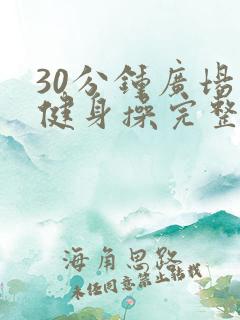 30分鍾廣場
健身操完整
海角思路
未经同意禁止转载